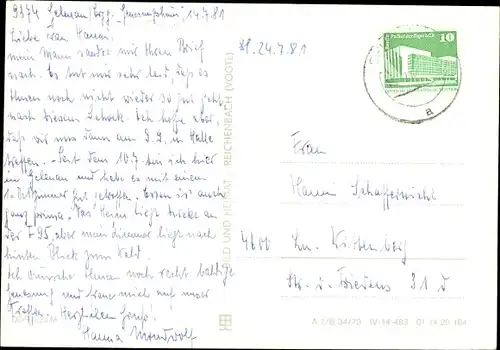 9374 Gelenau/Erzg., 14.7.81
Liebe Frau Hanni!
mein Mann sandte mir Ihren Brief
nach. Es tut mir sehr leid, daß es
Ihnen noch nicht wieder so gut geht
nach diesem Schock. Ich hoffe aber,
daß wir uns dann am 9.9. in Halle
treffen. – Seit dem 10.7. bin ich hier
in Gelenau und habe es mit einem
1-Bettzimmer gut getroffen. Essen ist auch
ganz prima. Das Heim liegt direkt an
der F 95, aber mein Zimmer liegt nach
hinten Blick zum Wald.
Ich wünsche Ihnen noch recht baldige
Genesung und freue mich auf unser
Treffen. Herzlichen Gruß
Hanna
24.7.81
BILD UND HEIMAT REICHENBACH (VOGTL)
10
a
Frau
Hanni
4600 Lu. Wittenberg
Str. d. Friedens 31 d
A 1/B 34/79 IV-14-483 01 14 20 164